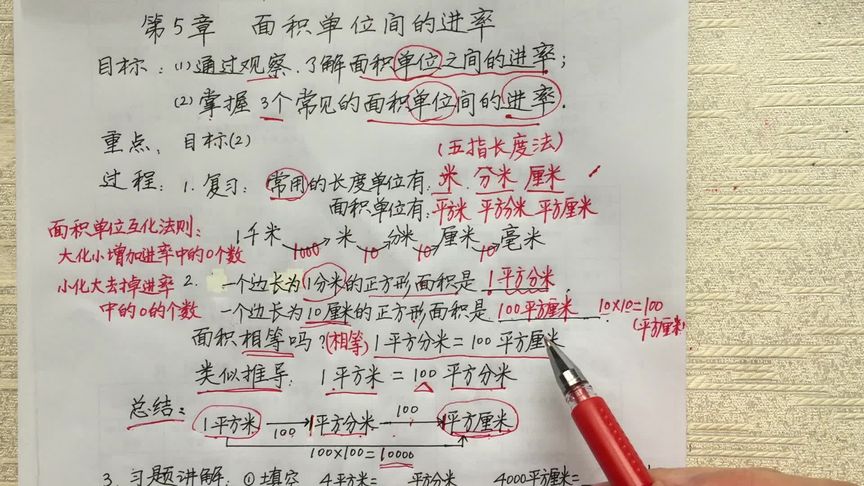 第5章 面积单位间的进率
目标:(1)通过观察.了解面积单位之间的进率;
(2)掌握3个常见的面积单位间的进率.
重点、目标(2)
(五指长度法)
过程:1.复习:常用的长度单位有:米.分米 厘米
面积单位有:平方米 平方分米 平方厘米
面积单位互化法则:
大化小增加进率中的0个数
小化大去掉进率
中的0的个数
1千米 1000 米 10 分米 10 厘米 10 毫米
2. 一个边长为1分米的正方形面积是 1平方分米.
一个边长为10厘米的正方形面积是 100平方厘米 10×10=100
(平方厘米)
面积相等吗?(相等) 1平方分米=100平方厘米
类似推导: 1平方米=100平方分米
总结: 1平方米 100 1平方分米 100 1平方厘米
100×100=10000
3.习题讲解:①填空 4平方米= 平方分米 4000平方厘米=